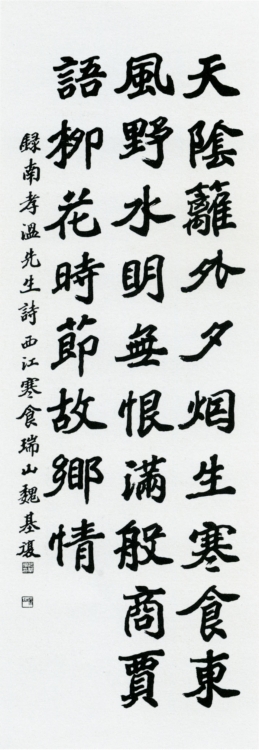 天陰籬外夕烟生寒食東
風野水明無恨滿般商賈
語柳花時節故鄉情
録南孝溫先生詩西江寒食瑞山魏基復